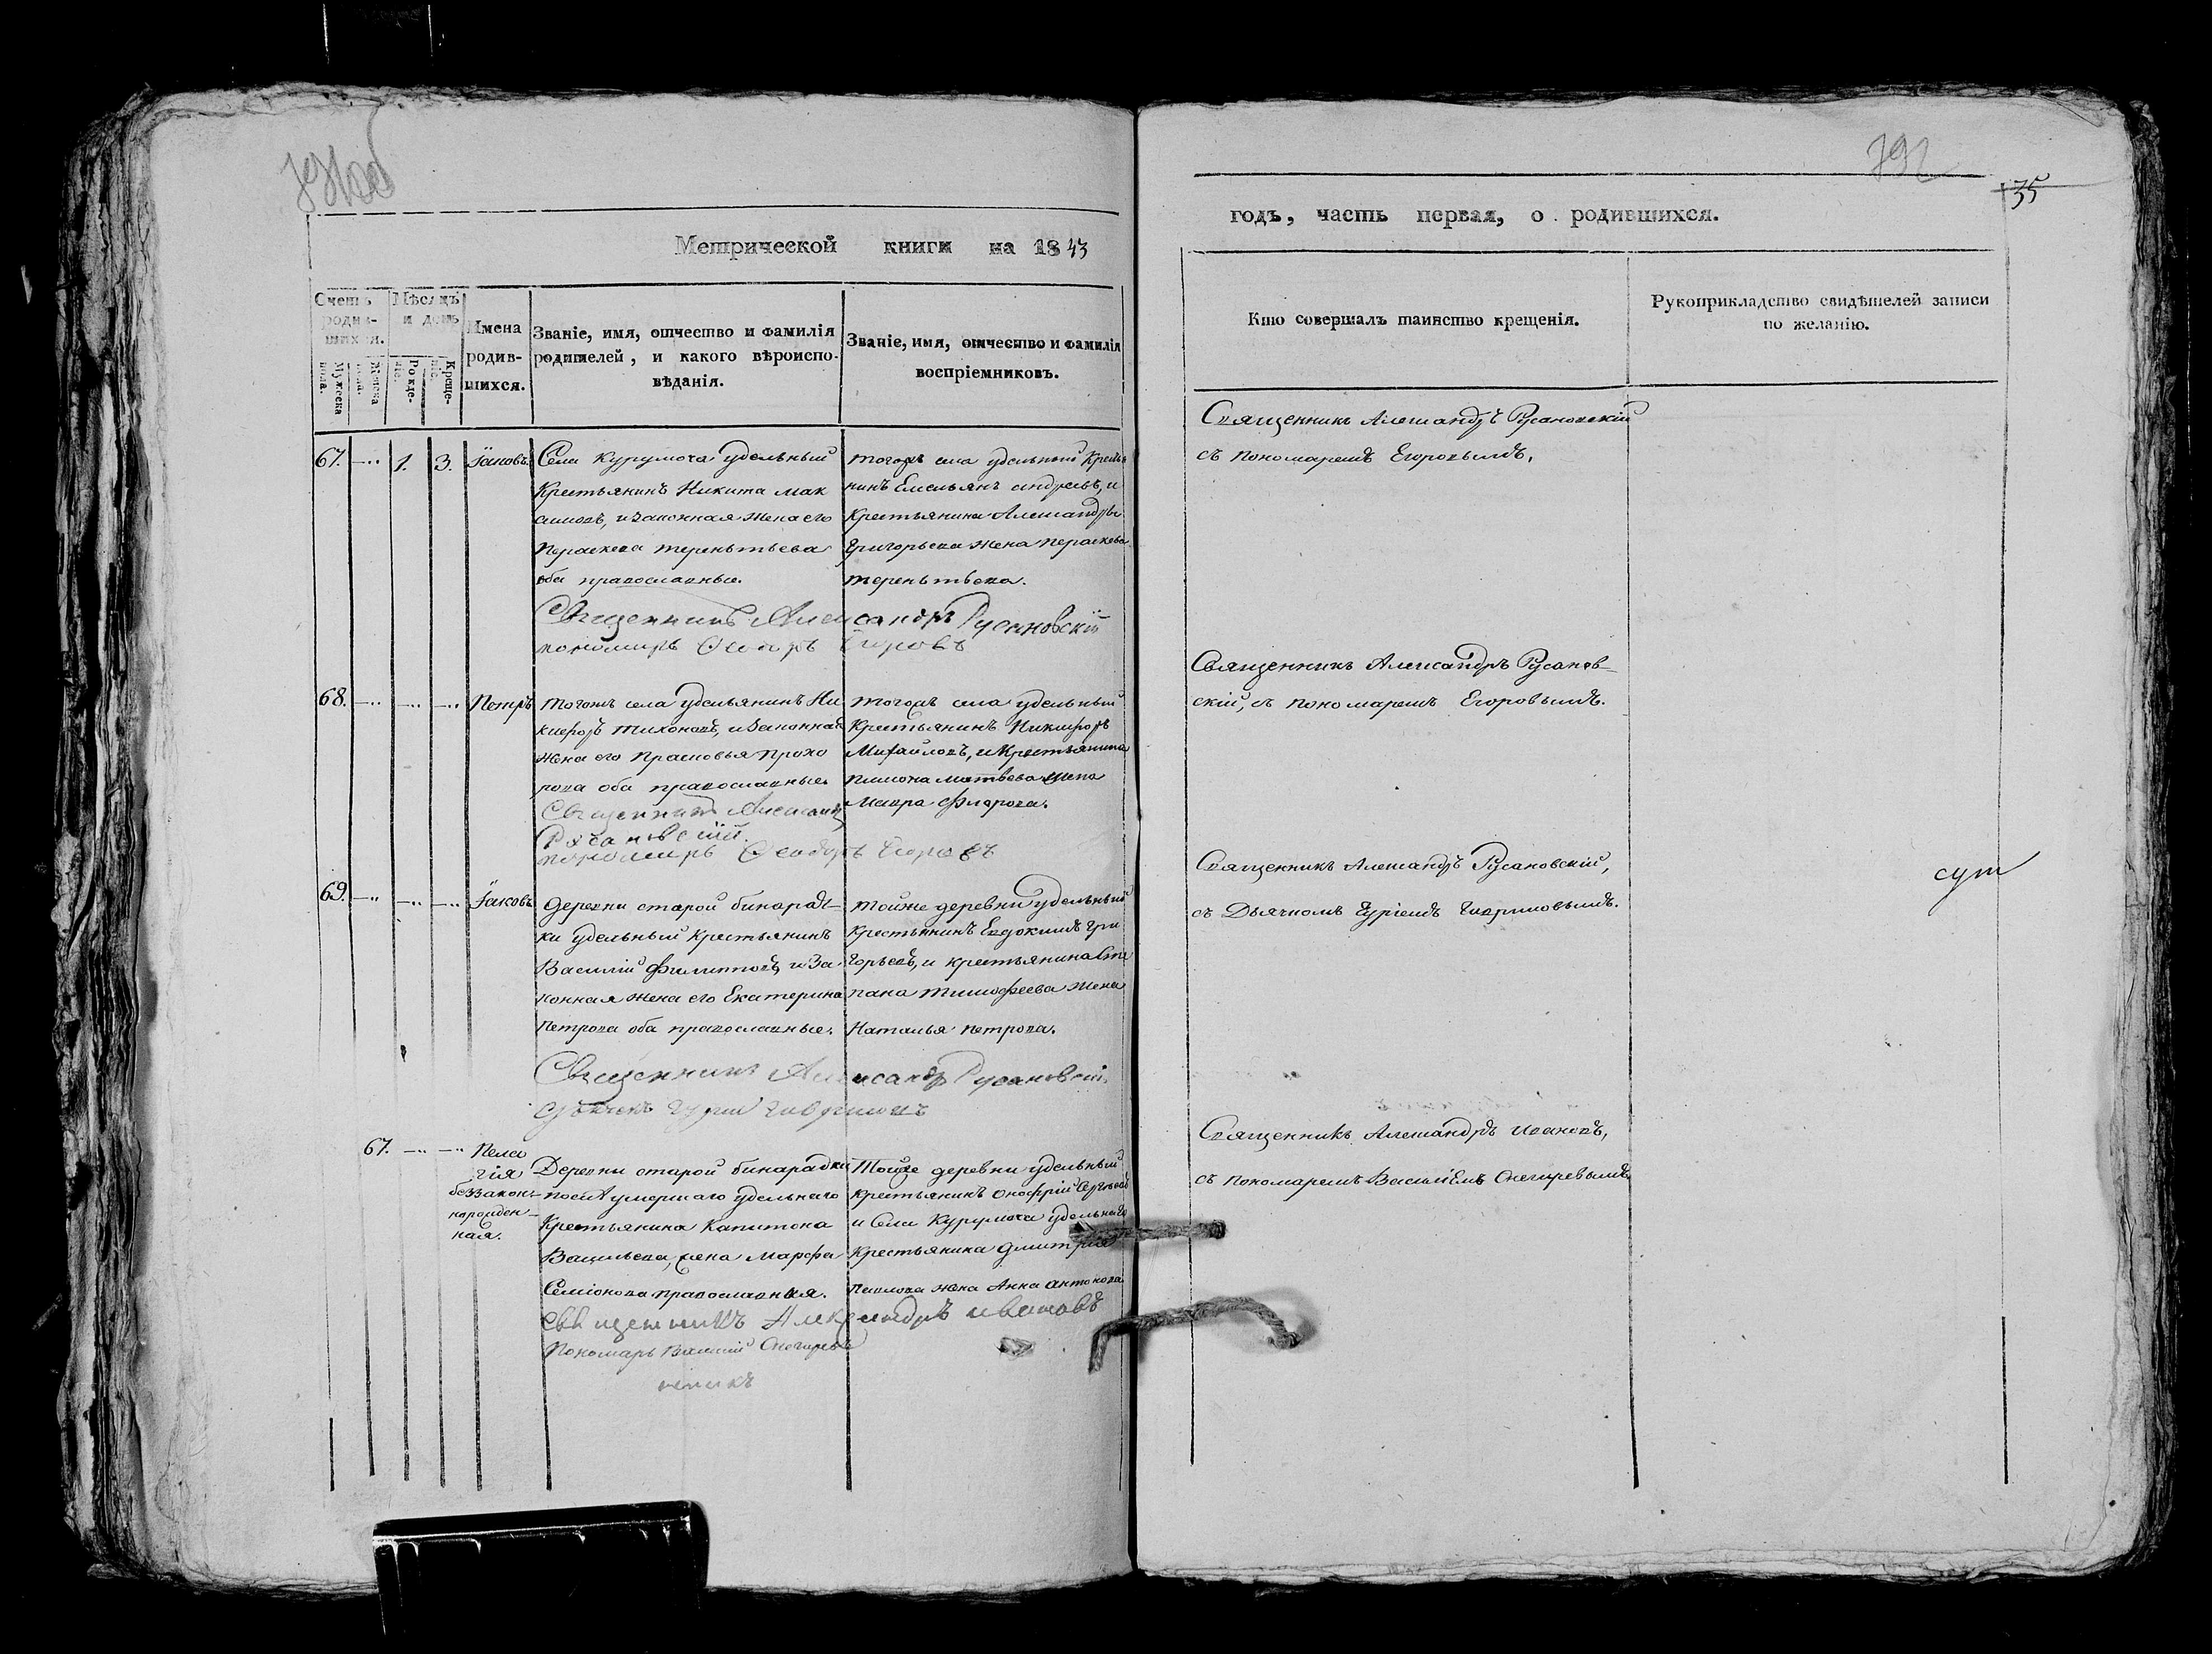 791об
792
35
Метрической книги на 1843
годъ, часть первая, о родившихся.
Счетъ родившихся.
Мужеска пола.
Женска пола.
Мѣсяцъ и день
Рожденіе.
Крещеніе.
Имена родившихся.
Званіе, имя, отчество и фамилія родителей, и какого вѣроисповѣданія.
Званіе, имя, отчество и фамилія воспріемниковъ.
Кто совершалъ таинство крещенія.
Рукоприкладство свидѣтелей записи по желанію.
67. 1. 3. Іаковъ.
Села Курумоча удельный
Крестьянинъ Никита Мак
симовъ, и законная жена его
Пераскева терентьева
оба православные.
тогожъ села удельный Крестья
нинъ Емельянъ андреевъ, и
Крестьянина Александра
Григорьева жена Пераскева
терентьева.
Священникъ Александръ Русановскій
съ пономаремъ Егоровымъ.
Священникъ Александръ Русановскій
пономарь Ѳеодоръ Егоровъ
68. Петръ
тогожъ села удельянинъ Ни
кифоръ тихоновъ, и законная
жена его Прасковья Прохо
рова оба православные.
тогожъ села удельный
Крестьянинъ Никифоръ
Михайловъ, и Крестьянина
Пимона матвѣева жена
Мавра Фларова.
Священникъ Александръ Русанов-
скій, съ пономаремъ Егоровымъ.
Священникъ Александръ
Русановскій
пономарь Ѳеодоръ Егоровъ
69. Іаковъ
деревни старой бинарад-
ки удельный Крестьянинъ
Василій Филиповъ, и за
конная жена его Екатерина
Петрова оба православные.
тойже деревни удельный
Крестьянинъ Евдокимъ Гри
горьевъ, и крестьянина Сте
пана тимофеева жена
Наталья петрова.
Священникъ Александръ Русановскій,
съ Дьячкомъ Гуріемъ Гавриловымъ.
Священникъ Александръ Русановскій
дьячекъ Гурій Гавриловъ
67. Пела
гія
беззакон-
норожден-
ная.
Деревни старой бинарадки
послѣ умершаго удельнаго
Крестьянина Капитона
Васильева, жена марфа
Семіонова православная.
Тойже деревни удельный
крестьянинъ Онофрій Сергѣевъ
и Села Курумоча удельнаго
Крестьянина дмитрія
Павлова жена Анна антонова
Священникъ Александръ Ивановъ,
съ пономаремъ Василіемъ Снегиревымъ.
Священникъ Александръ Ивановъ
Пономарь Василій Снегиревъ